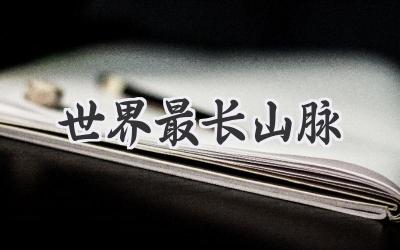 世界最长山脉